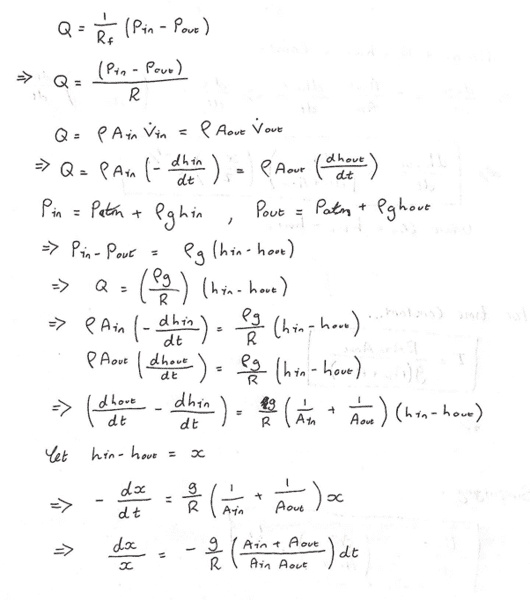 Q = 1/R_f (P_in - P_out)
⇒ Q = (P_in - P_out)/R
Q = ρ A_in V̇_in = ρ A_out V̇_out
⇒ Q = ρ A_in (- dh_in/dt) = ρ A_out (dh_out/dt)
P_in = P_atm + ρg h_in , P_out = P_atm + ρg h_out
⇒ P_in - P_out = ρg (h_in - h_out)
⇒ Q = (ρg/R) (h_in - h_out)
⇒ ρ A_in (- dh_in/dt) = ρg/R (h_in - h_out)
ρ A_out (dh_out/dt) = ρg/R (h_in - h_out)
⇒ (dh_out/dt - dh_in/dt) = g/R (1/A_in + 1/A_out) (h_in - h_out)
Let h_in - h_out = x
⇒ - dx/dt = g/R (1/A_in + 1/A_out) x
⇒ dx/x = - g/R (A_in + A_out / A_in A_out) dt